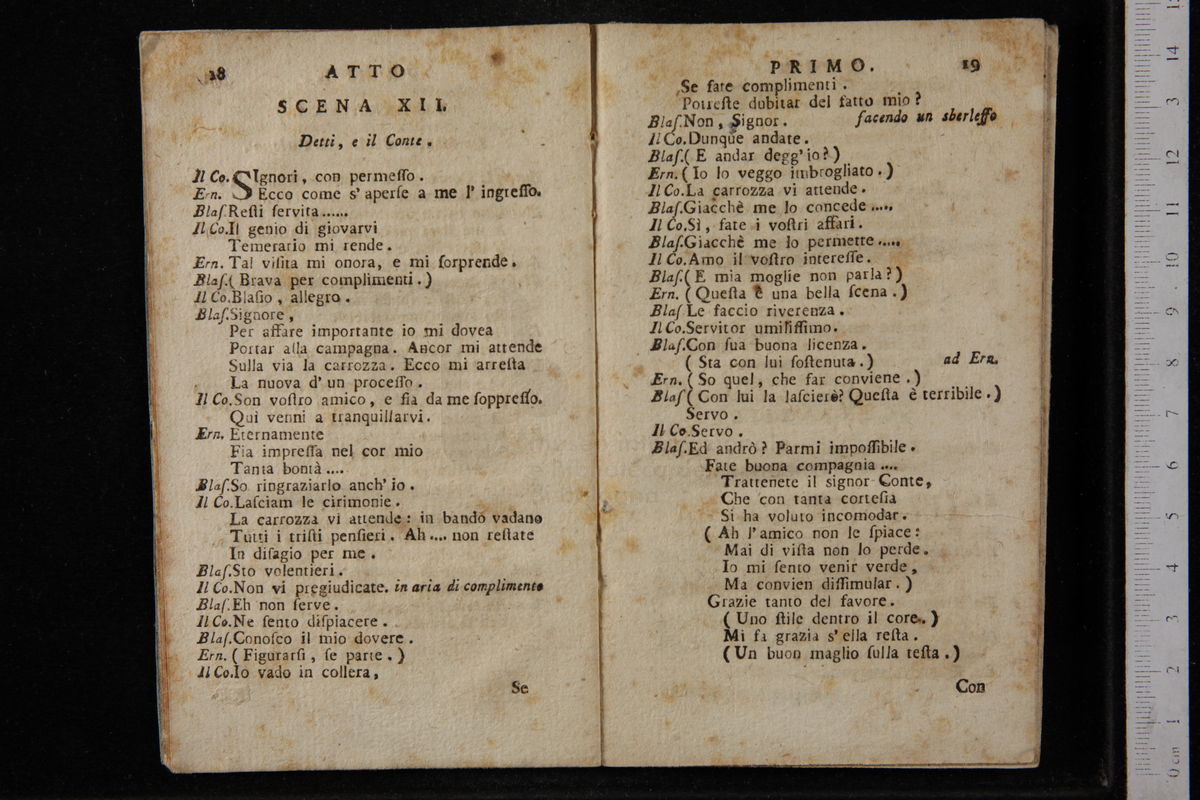 18 ATTO
SCENA XII.
Detti, e il Conte.
Il Co. SIgnori, con permeſſo.
Ern. Ecco come s' aperſe a me l' ingreſſo.
Blaſ. Reſti ſervita......
Il Co. Il genio di giovarvi
Temerario mi rende.
Ern. Tal viſita mi onora, e mi ſorprende.
Blaſ. ( Brava per complimenti. )
Il Co. Blaſio, allegro.
Blaſ. Signore,
Per affare importante io mi dovea
Portar alla campagna. Ancor mi attende
Sulla via la carrozza. Ecco mi arreſta
La nuova d' un proceſſo.
Il Co. Son voſtro amico, e ſia da me ſoppreſſo.
Qui venni a tranquillarvi.
Ern. Eternamente
Fia impreſſa nel cor mio
Tanta bontà....
Blaſ. So ringraziarlo anch' io.
Il Co. Laſciam le cirimonie.
La carrozza vi attende: in bando vadano
Tutti i triſti penſieri. Ah.... non reſtate
In diſagio per me.
Blaſ. Sto volentieri.
Il Co. Non vi pregiudicate. in aria di complimento
Blaſ. Eh non ſerve.
Il Co. Ne ſento diſpiacere.
Blaſ. Conoſco il mio dovere.
Ern. ( Figurarſi, ſe parte. )
Il Co. Io vado in collera,
Se
PRIMO. 19
Se fate complimenti.
Potreſte dubitar del fatto mio?
Blaſ. Non, Signor. facendo un sberleffo
Il Co. Dunque andate.
Blaſ. ( E andar degg' io? )
Ern. ( Io lo veggo imbrogliato. )
Il Co. La carrozza vi attende.
Blaſ. Giacchè me lo concede.....
Il Co. Sì, fate i voſtri affari.
Blaſ. Giacchè me lo permette.....
Il Co. Amo il voſtro intereſſe.
Blaſ. ( E mia moglie non parla? )
Ern. ( Queſta è una bella ſcena. )
Blaſ Le faccio riverenza.
Il Co. Servitor umiliſſimo.
Blaſ. Con ſua buona licenza.
( Sta con lui ſoſtenuta. ) ad Ern.
Ern. ( So quel, che far conviene. )
Blaſ ( Con lui la laſcierè? Queſta è terribile. )
Servo.
Il Co. Servo.
Blaſ. Ed andrò? Parmi impoſſibile.
Fate buona compagnia....
Trattenete il signor Conte,
Che con tanta corteſia
Si ha voluto incomodar.
( Ah l' amico non le ſpiace:
Mai di viſta non lo perde.
Io mi ſento venir verde,
Ma convien diſſimular. )
Grazie tanto del favore.
( Uno ſtile dentro il core. )
Mi fa grazia s' ella reſta.
( Un buon maglio ſulla teſta. )
Con
0 cm 1 2 3 4 5 6 7 8 9 10 11 12 3 14